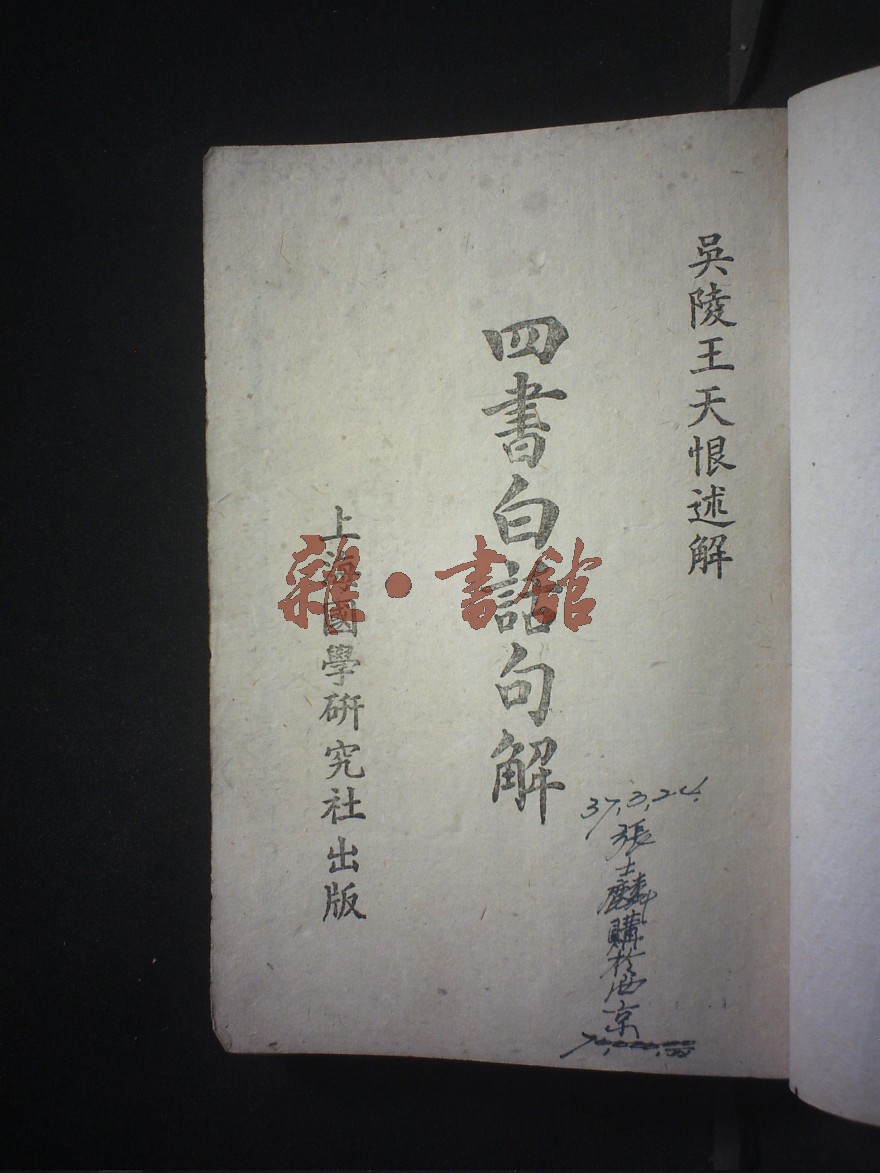 吳陵王天恨述解
四書白話句解
上海國學研究社出版
雜·書館
37,3,24.
張士麟購於西京